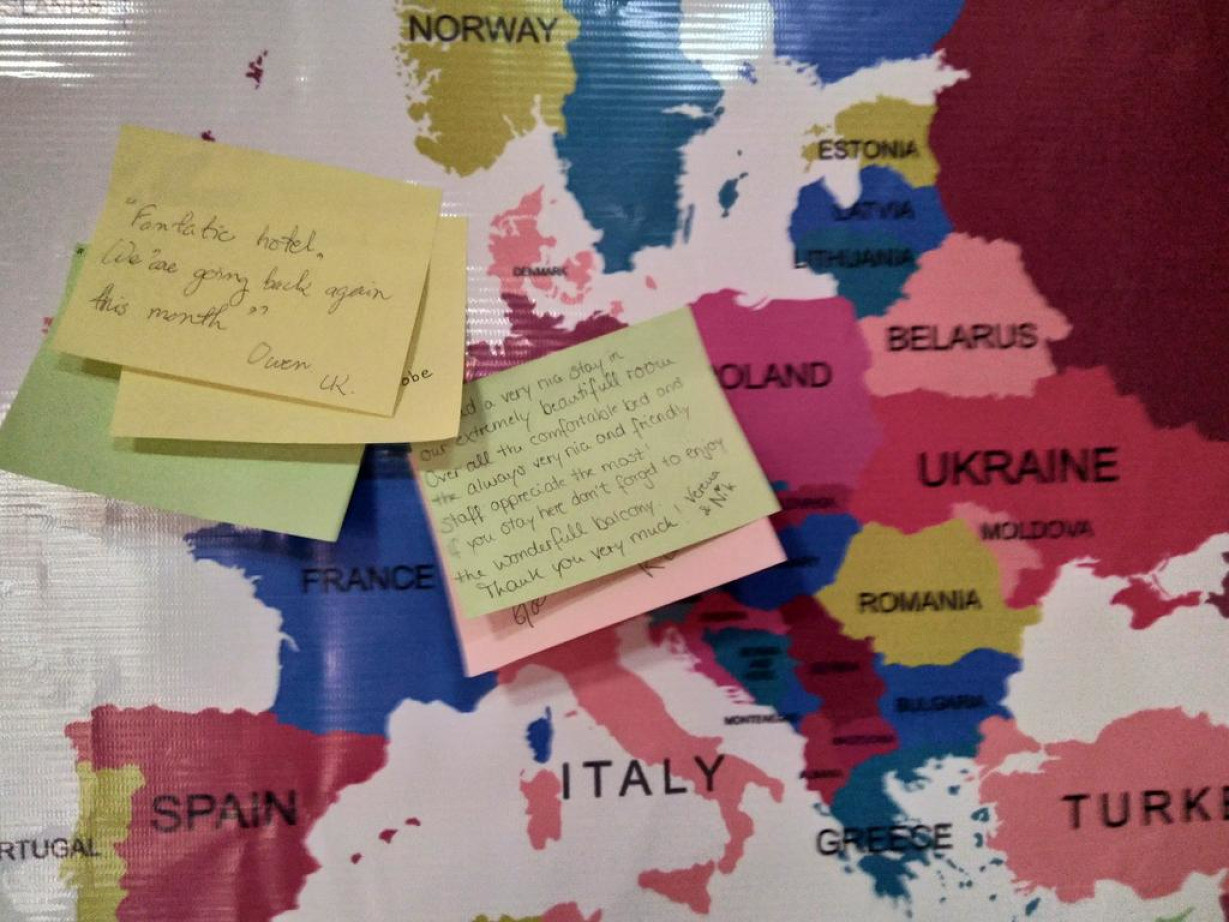 NORWAY
ESTONIA
LATVIA
LITHUANIA
DENMARK
BELARUS
OLAND
UKRAINE
MOLDOVA
"Fantatic hotel,
We're going back again
this month"
Owen
UK.
obe
a very nia stay in
our extremely beautifull room
Over all the comfortable bed and
the always very nia and friendly
staff appreciate the most!
If you stay here don't forget to enjoy
the wonderfull balcony.
Thank you very much! Verena
& Nik
FRANCE
ROMANIA
BULGARIA
MONTENEGRO
ITALY
SPAIN
RTUGAL
GREESE
TURKE